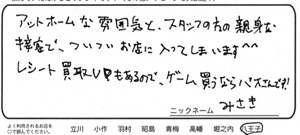 アットホームな雰囲気と、スタッフの方の親身な
接客で、ついついお店に入ってしまいます^^
レシート買取UPもあるので、ゲーム買うならパスさんです!
ニックネーム みさき
よく利用されるお店を
○で囲んでください。
立川 小作 羽村 昭島 青梅 高幡 堀之内 八王子